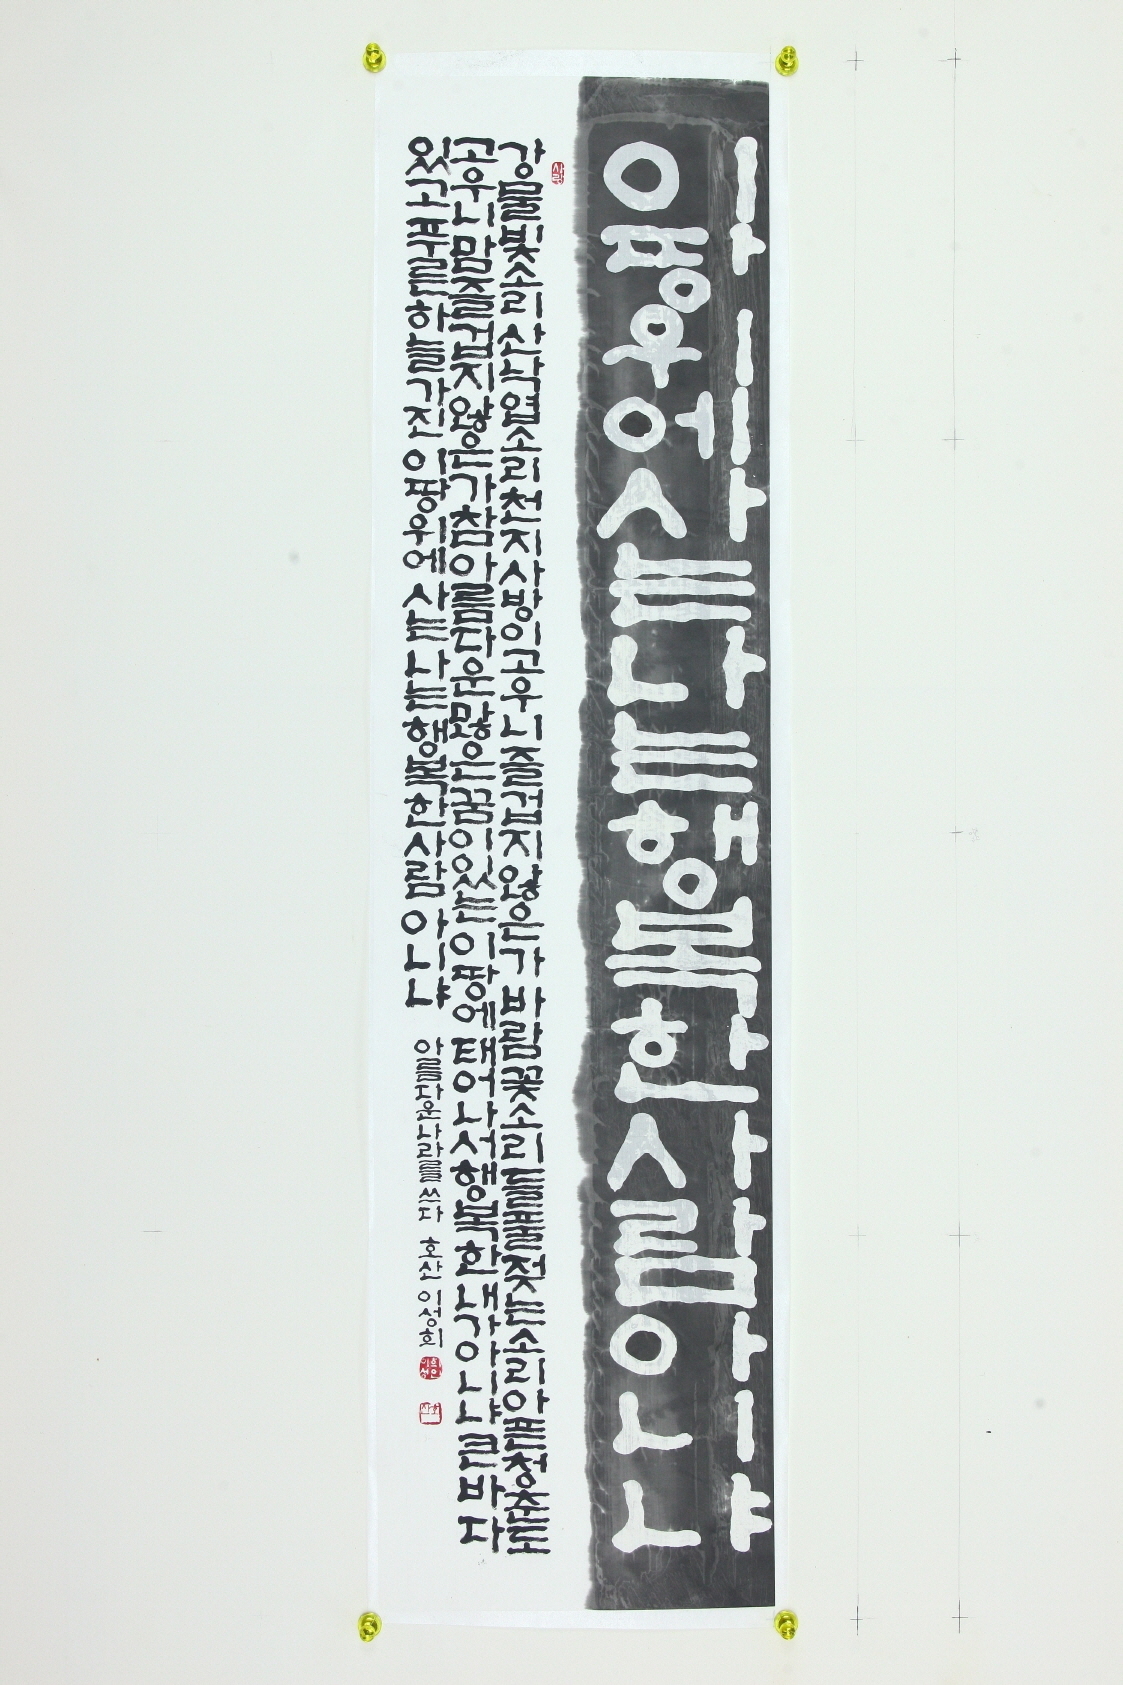 이 땅 위에 사는 나는 행복한 사람 아니냐
사랑
강물빛소리 산낙엽소리 천지사방이 고우니 즐겁지 않은가 바람꽃소리 들풀젖는소리 아픈청춘도
고우니 맘 즐겁지 않은가 참 아름다운 많은 꿈이 있는 이 땅에 태어나서 행복한 내가 아니냐 큰바다
있고 푸른하늘 가진 이 땅 위에 사는 나는 행복한 사람 아니냐
아름다운나라를 쓰다 호산 이성희